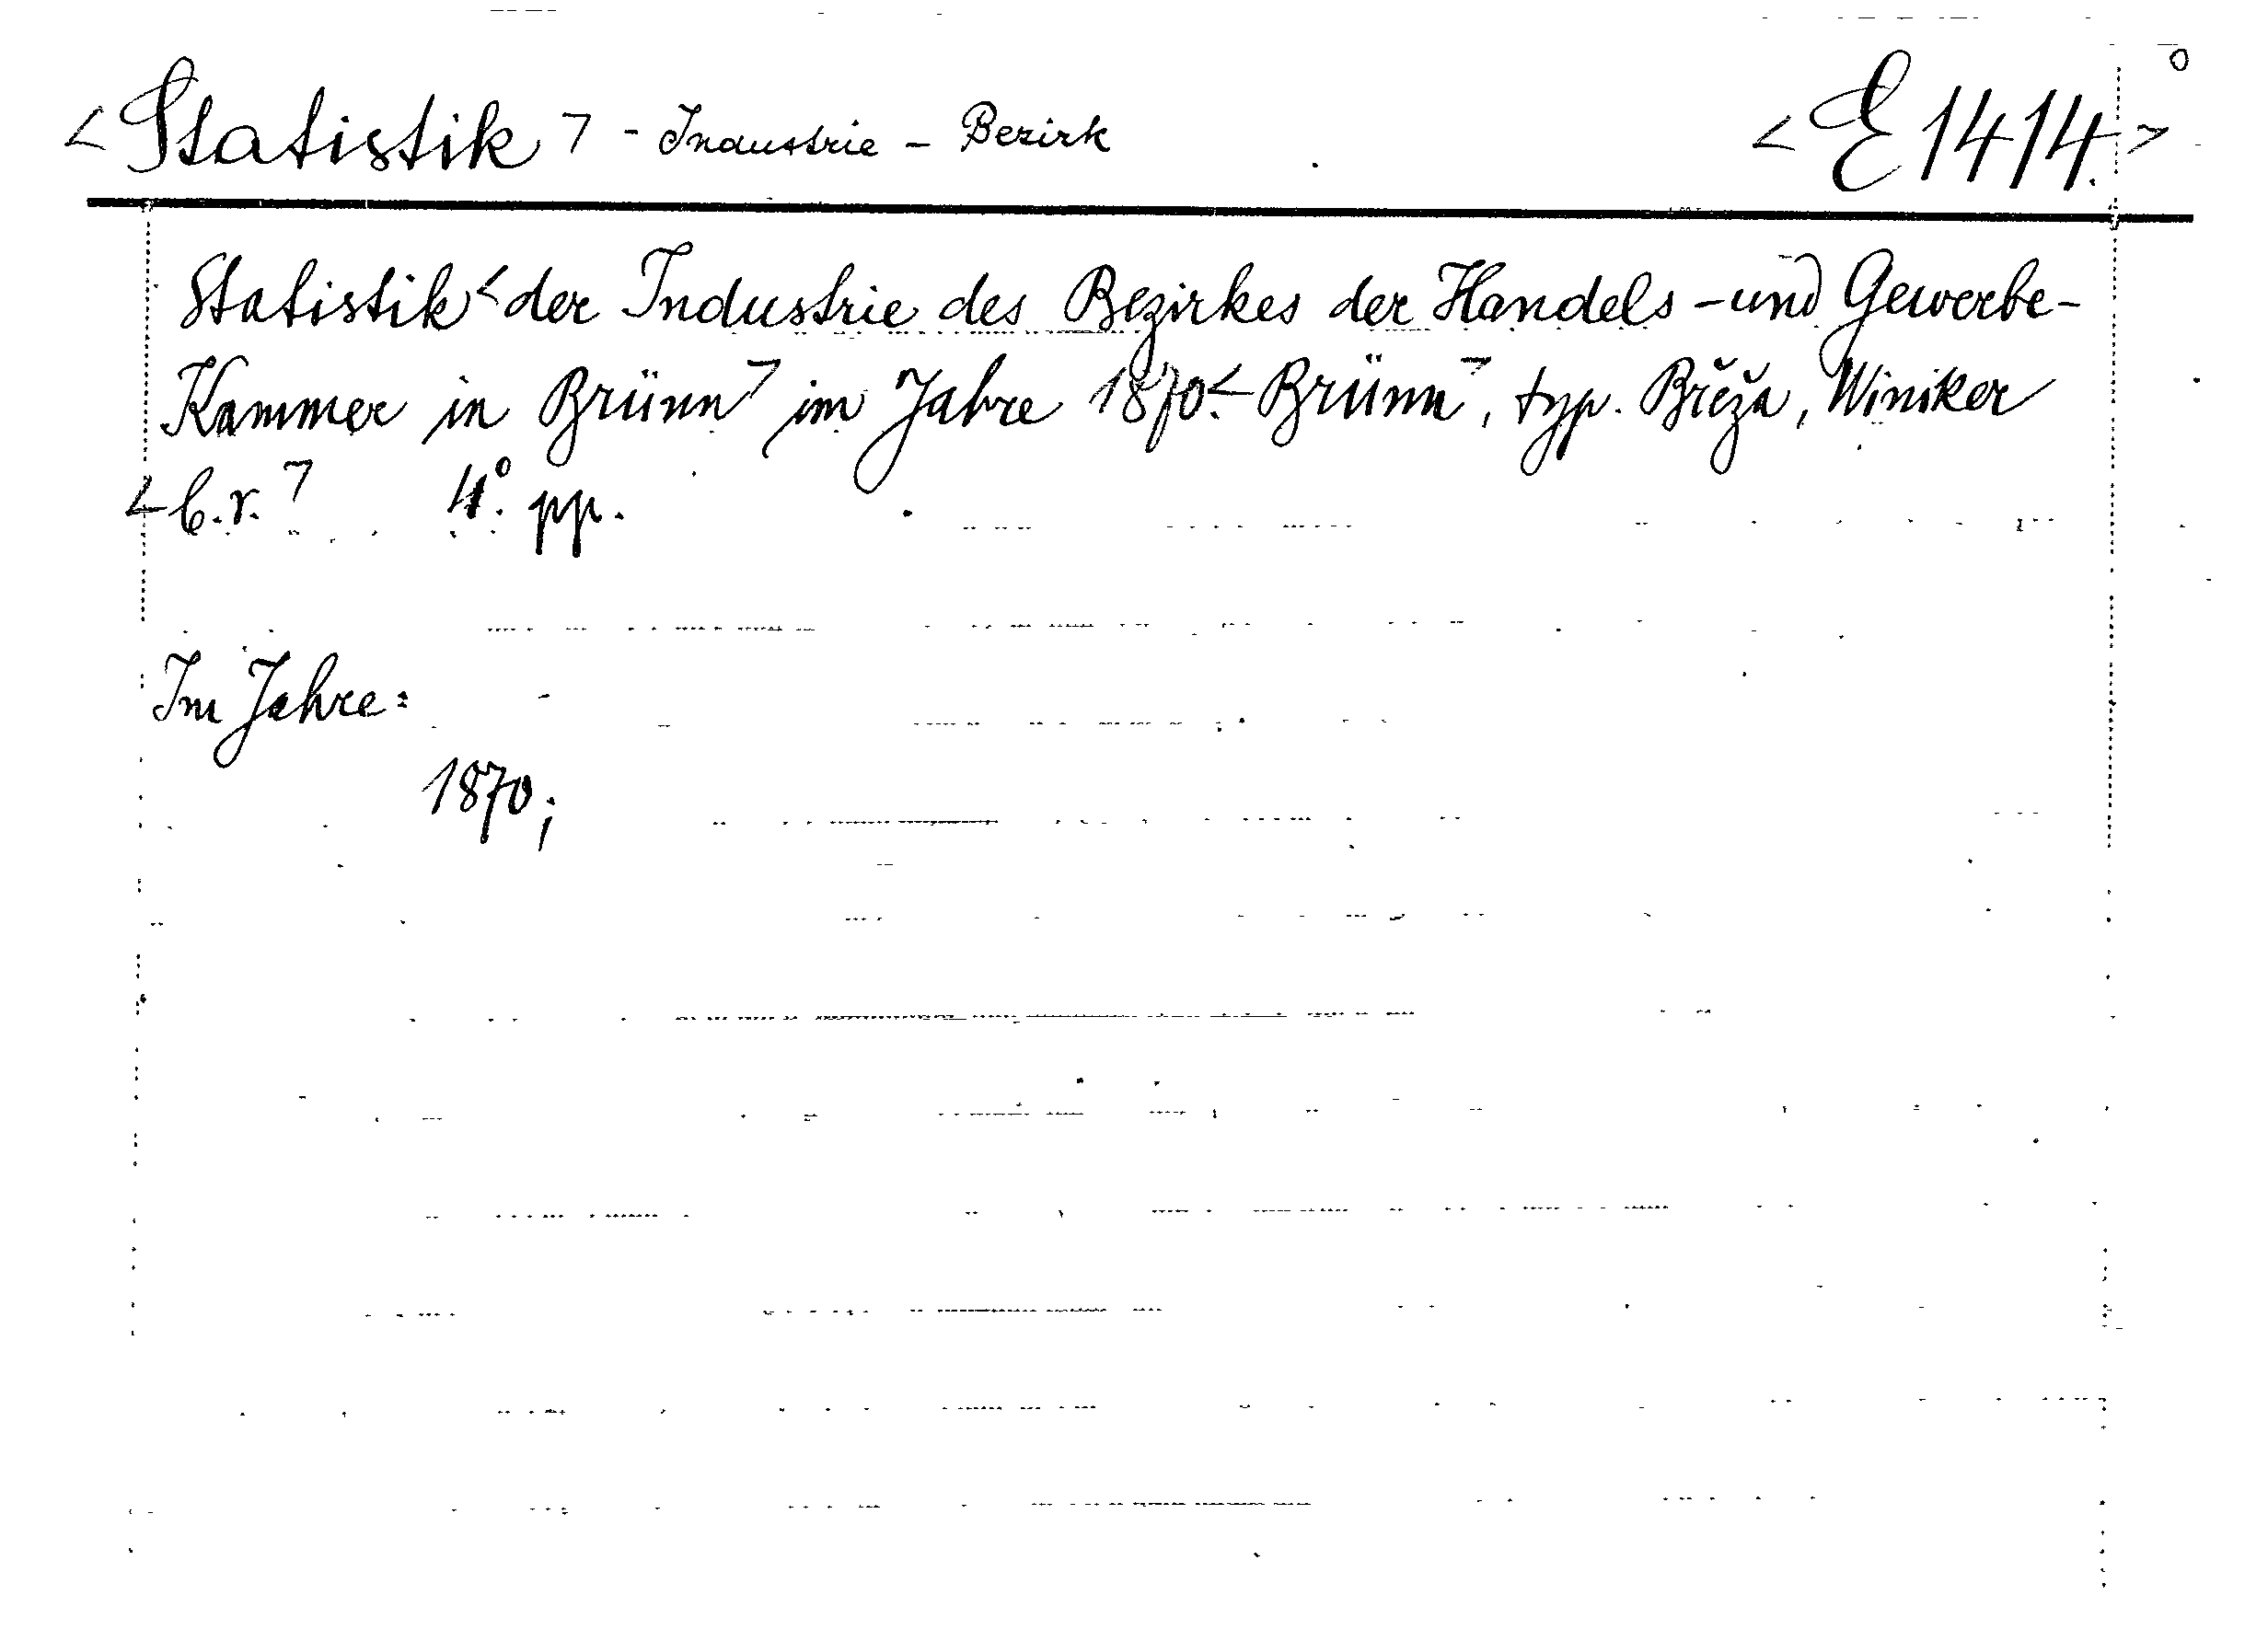 <Statistik> - Industrie - Bezirk <E 1414.>
Statistik <der Industrie des Bezirkes der Handels- und Gewerbe-
Kammer in Brünn> im Jahre 1870. <Brünn>, typ. Břeža, Winiker
<b.r.> 4° pp.
Im Jahre:
1870;